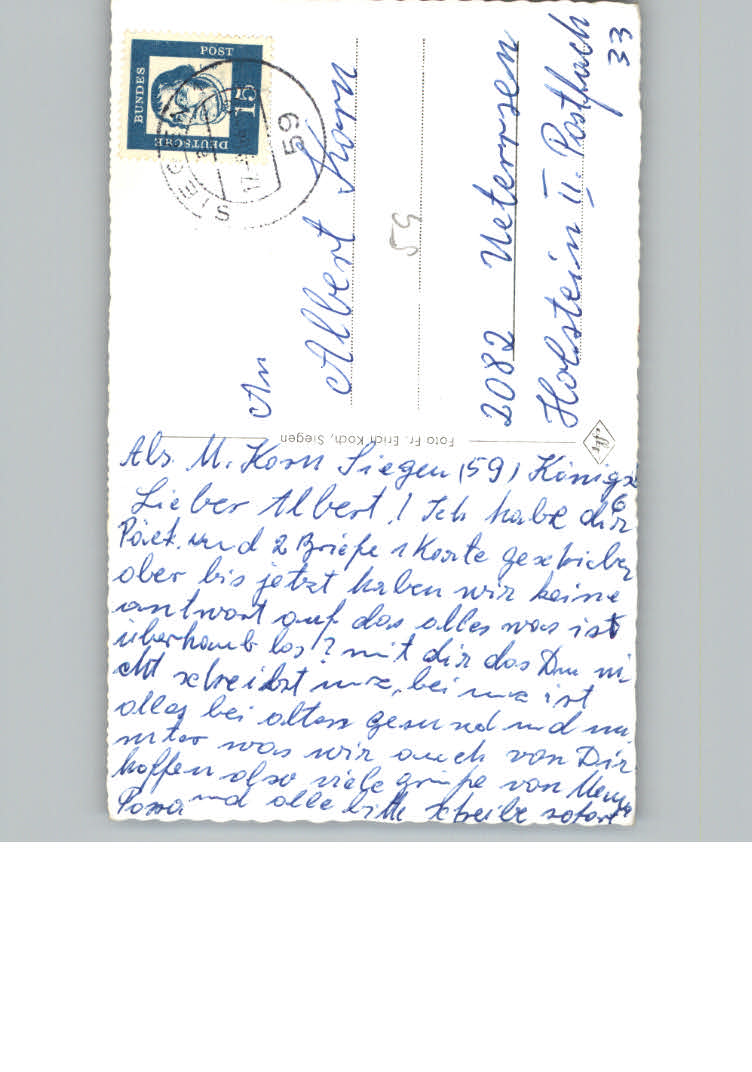 DEUTSCHE
BUNDES
POST
15
59
An
Albert Korn
59
2082 Uetersen
Holstein II Postfach
33
Foto Fr. Erich Koch, Siegen
Abs. M. Korn Siegen (59) Königs
Lieber Albert! Ich habe dir
und 2 Briefe 1 Karte geschieben
ober bis jetzt haben wir keine
antwort auf das alles was ist
überhaub los? mit dir das Du ni
cht schreibst uns, bei uns ist
alles bei alten gesund und mu
nter was wir auch von Dir
hoffen also viele grüße von
und alle bitte schreibe sofort